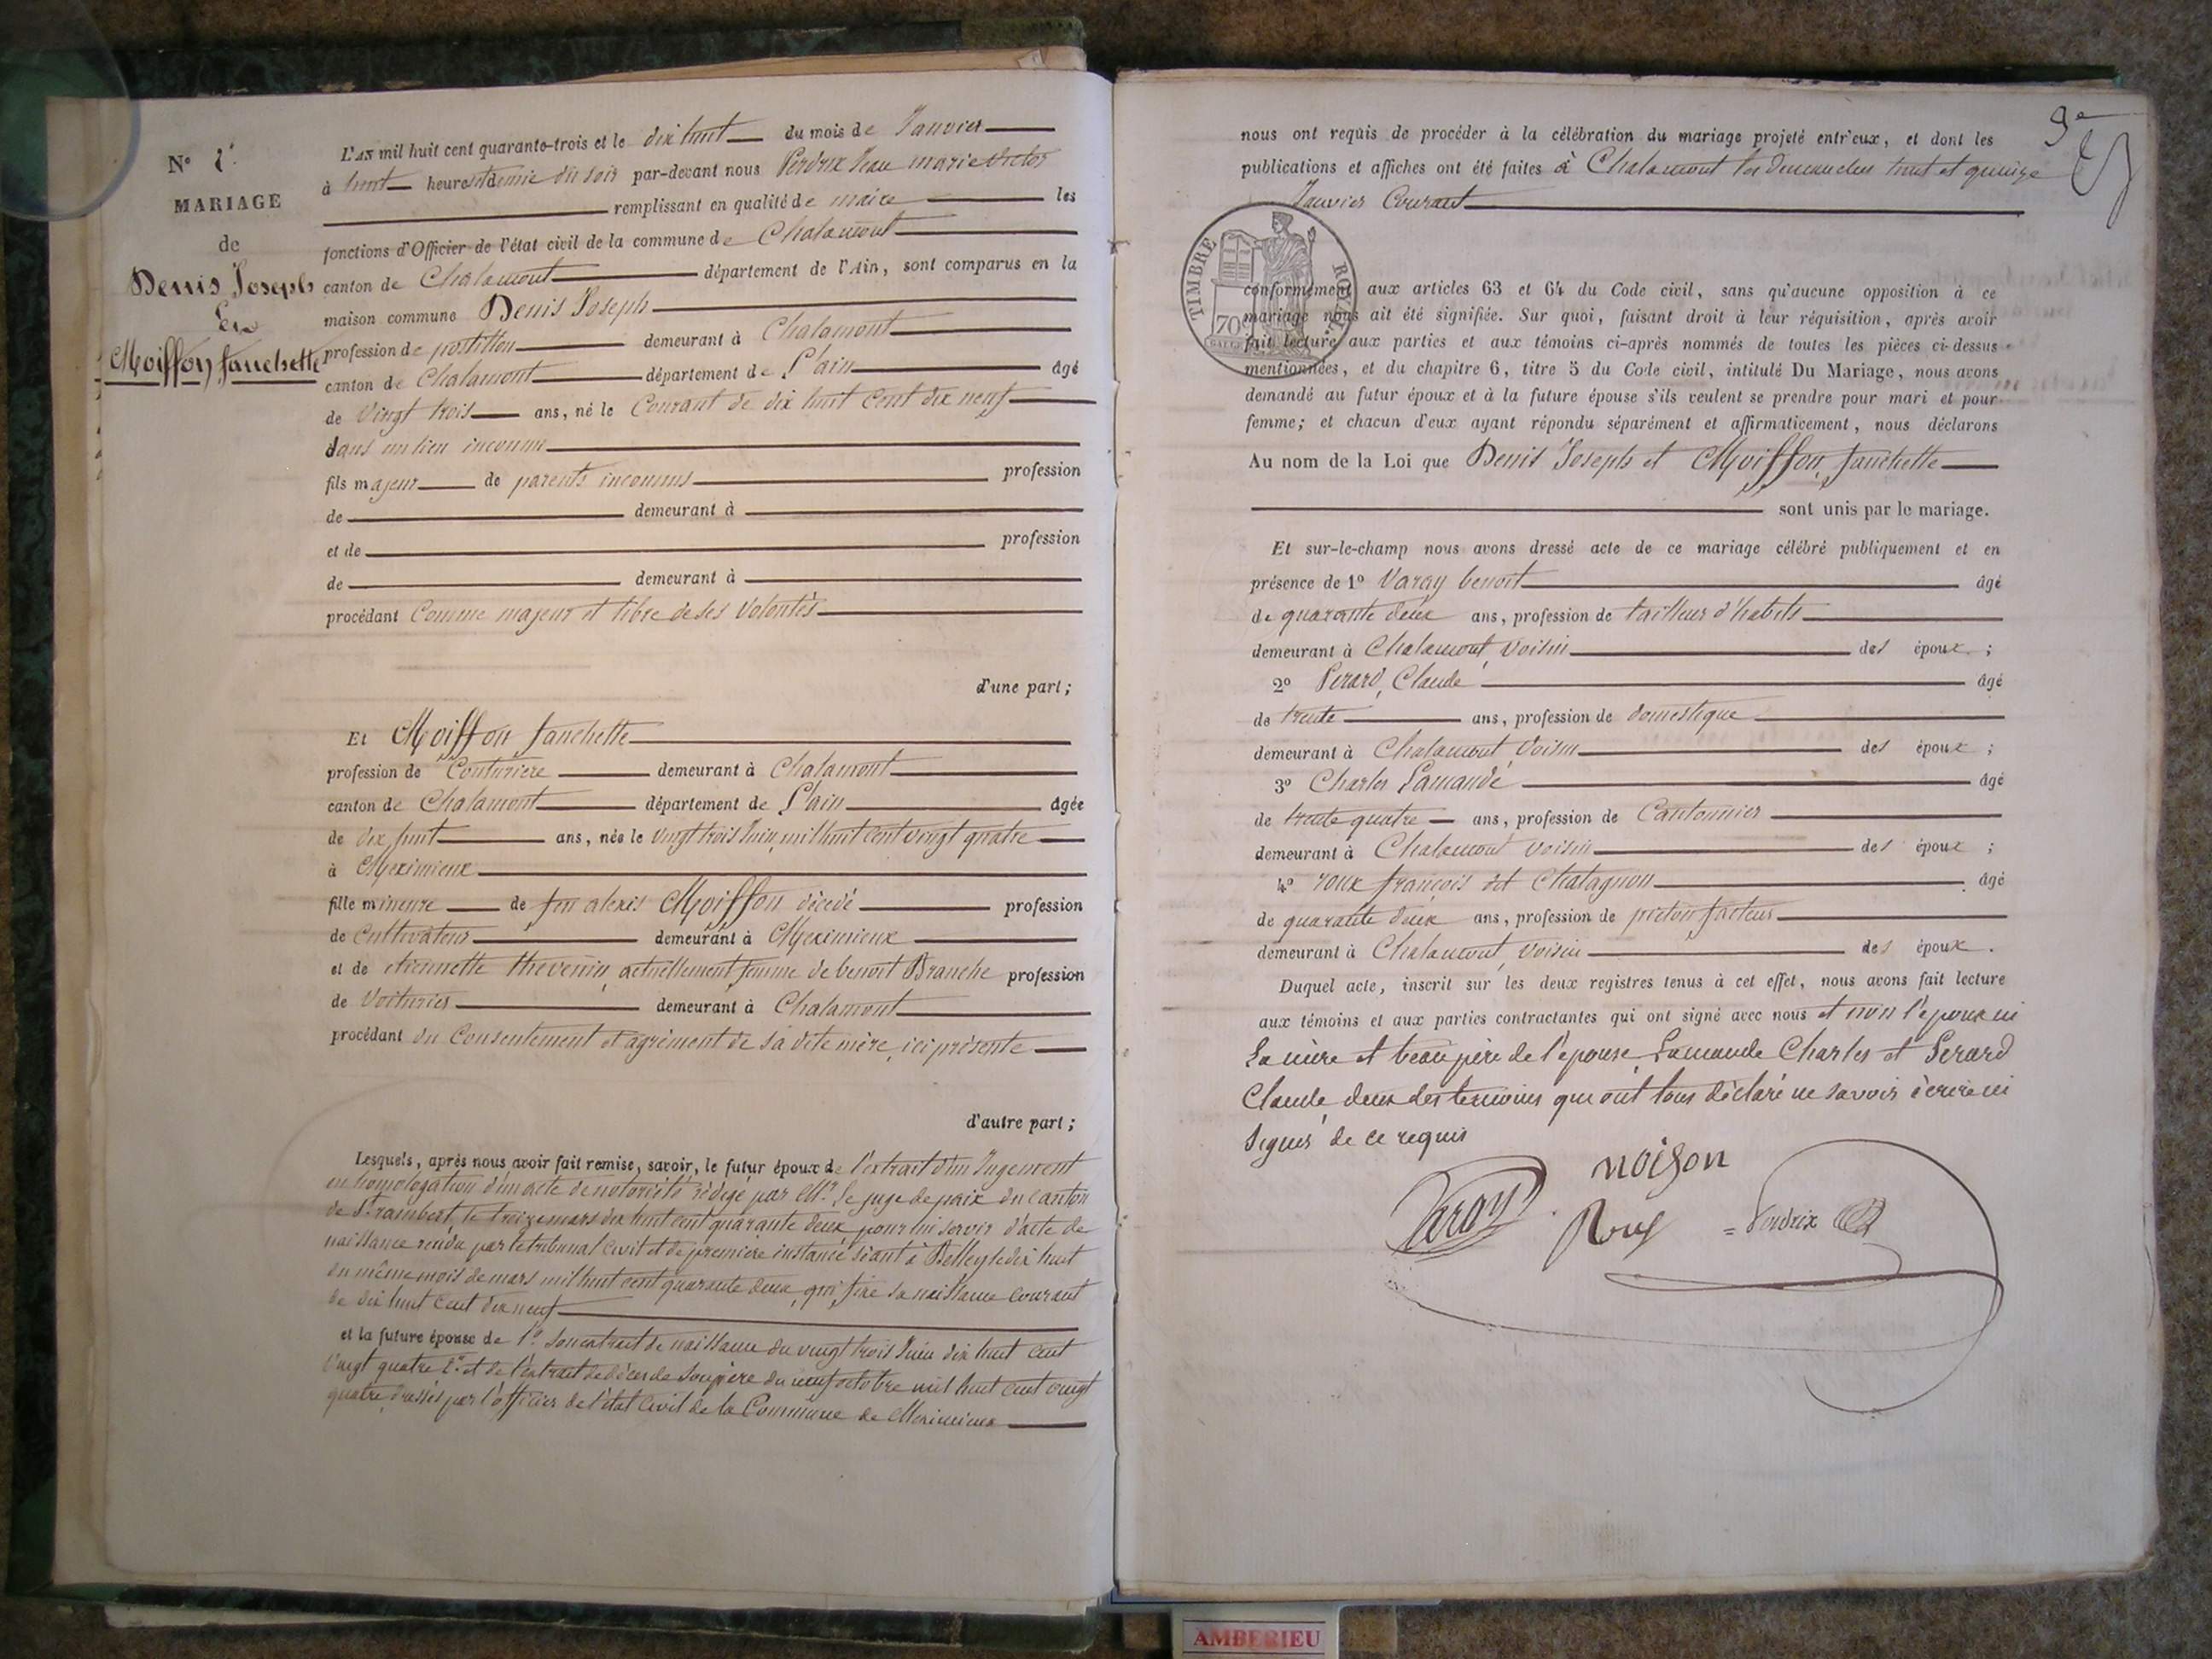 MARIAGE
de
Denis Joseph
et
Moiffon fanchette
L'AN mil huit cent quarante-trois et le dix huit du mois de Janvier
à huit heures et demie du soir par-devant nous Perdrix Jean marie victor
remplissant en qualité de maire les
fonctions d'Officier de l'état civil de la commune de Chalamont
canton de Chalamont département de l'Ain, sont comparus en la
maison commune Denis Joseph
profession de postillon demeurant à Chalamont
canton de Chalamont département de L'ain âgé
de vingt trois ans, né le Courant de dix huit Cent dix neuf
dans un lieu inconnu
fils majeur de parents inconnus profession
de demeurant à
et de profession
de demeurant à
procédant Comme majeur et libre de ses Volontés
d'une part;
Et Moiffon fanchette
profession de Couturiere demeurant à Chalamont
canton de Chalamont département de L'ain âgée
de dix huit ans, née le vingt trois Juin mil huit cent vingt quatre
à Meximieux
fille mineure de feu alexis Moiffon décedé profession
de Cultivateur demeurant à Meximieux
et de etiennette thevenin, actuellement femme de benoit Branche profession
de Voiturier demeurant à Chalamont
procédant du Consentement et agrément de sa dite mère, ici présente
d'autre part;
Lesquels, après nous avoir fait remise, savoir, le futur époux de l'extrait d'un Jugement
en homologation d'un acte de notoriété rédigé par Mr. le juge de paix du Canton
de St. rambert, le treize mars dix huit cent quarante deux pour lui servir d'acte de
naissance rendu par le tribunal Civil et de premiere instance séant à Belley le dix huit
du même mois de mars mil huit cent quarante deux, qui fixe sa naissance courant
de dix huit Cent dix neuf
et la future épouse de 1º. son extrait de naissance du vingt trois Juin dix huit cent
vingt quatre 2º. et de l'extrait de décès de son père du neuf octobre mil huit cent vingt
quatre, dressés par l'officier de l'état Civil de la Commune de Meximieux
nous ont requis de procéder à la célébration du mariage projeté entr'eux, et dont les
publications et affiches ont été faites à Chalamont les Dimanches huit et quinze
Janvier Courant
TIMBRE ROYAL
70c
conformément aux articles 63 et 64 du Code civil, sans qu'aucune opposition à ce
mariage nous ait été signifiée. Sur quoi, faisant droit à leur réquisition, après avoir
fait lecture aux parties et aux témoins ci-après nommés de toutes les pièces ci-dessus
mentionnées, et du chapitre 6, titre 5 du Code civil, intitulé Du Mariage, nous avons
demandé au futur époux et à la future épouse s'ils veulent se prendre pour mari et pour
femme; et chacun d'eux ayant répondu séparément et affirmativement, nous déclarons
Au nom de la Loi que Denis Joseph et Moiffon, fanchette
sont unis par le mariage.
Et sur-le-champ nous avons dressé acte de ce mariage célébré publiquement et en
présence de 1º Varay benoit âgé
de quarante deux ans, profession de tailleur d'habits
demeurant à Chalamont, voisin des époux;
2º Perard, Claude âgé
de trente ans, profession de domestique
demeurant à Chalamont voisin des époux;
3º Charles Lamande âgé
de trente quatre ans, profession de Cantonnier
demeurant à Chalamont voisin des époux;
4º roux françois dit Chatagnon âgé
de quarante deux ans, profession de piéton facteur
demeurant à Chalamont, voisin des époux.
Duquel acte, inscrit sur les deux registres tenus à cet effet, nous avons fait lecture
aux témoins et aux parties contractantes qui ont signé avec nous et non l'epoux ni
La mère et beau père de l'épouse, Lamande Charles et Perard
Claude deux des temoins qui ont tous déclaré ne savoir écrire ni
signer de ce requis
moifon
Varay Roux Perdrix
AMBERIEU